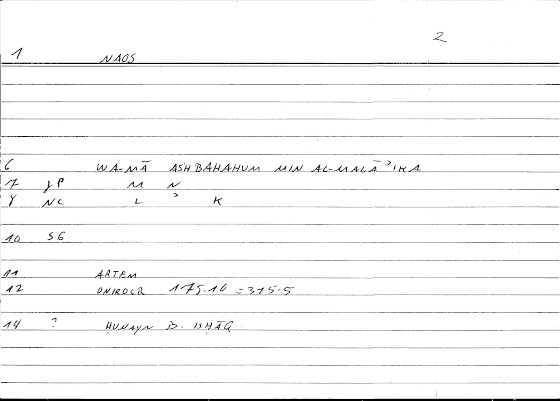 2
1 NAOS
6 WA-MĀ ASHBAHAHUM MIN AL-MALĀʾIKA
7 JP M N
8 NC L ʾ K
10 SG
11 ARTEM
12 ONIROCR 175.10 = 315.5
14 ? ḤUNAYN B. ISḤĀQ